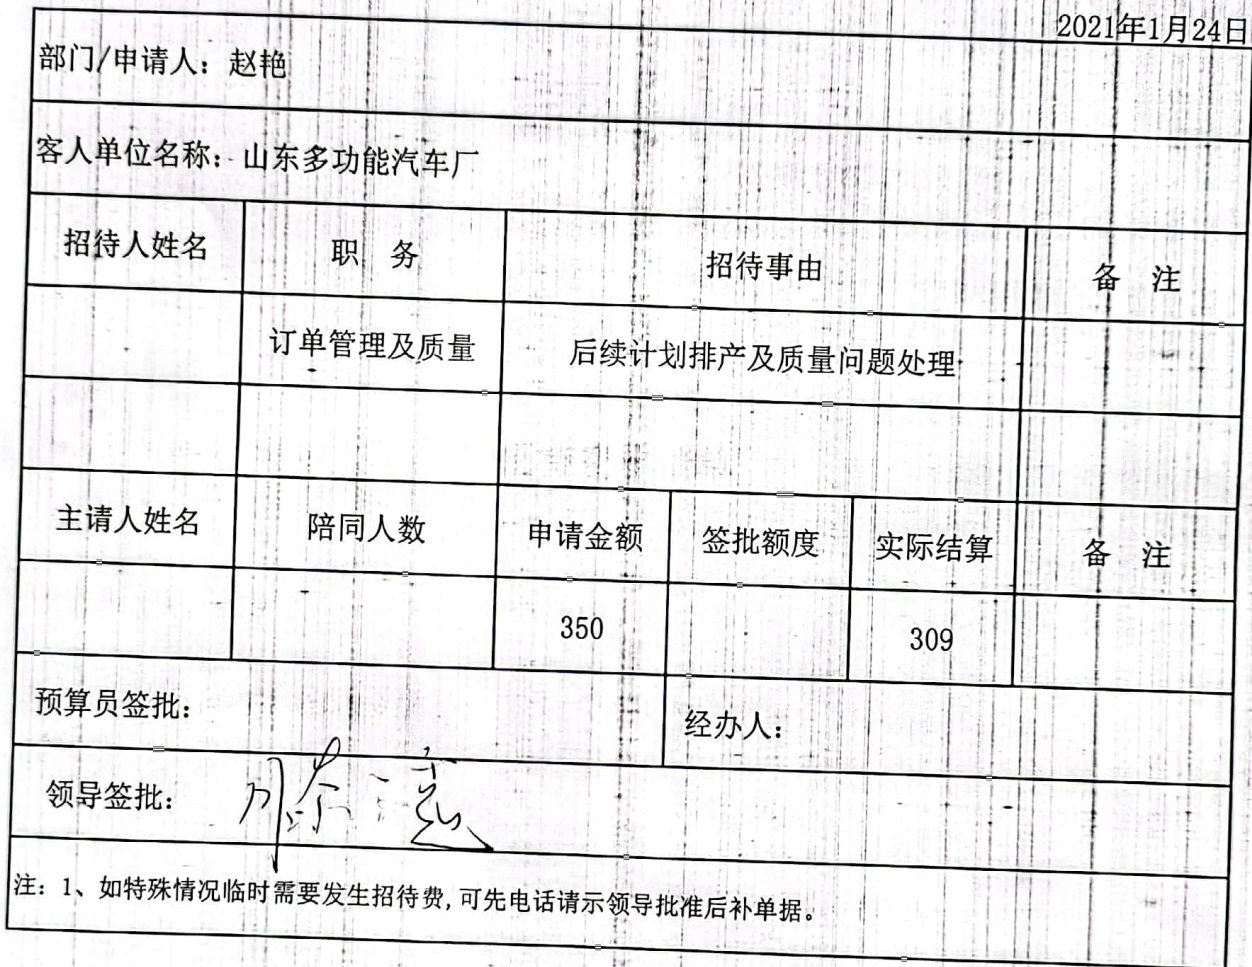 2021年1月24日
部门/申请人：赵艳
客人单位名称：山东多功能汽车厂
招待人姓名 职 务 招待事由 备 注
订单管理及质量 后续计划排产及质量问题处理
主请人姓名 陪同人数 申请金额 签批额度 实际结算 备 注
350 309
预算员签批： 经办人：
领导签批：
注：1、如特殊情况临时需要发生招待费,可先电话请示领导批准后补单据。